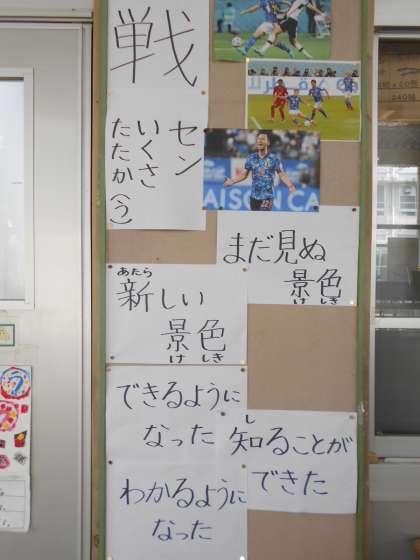 戦
セン
いくさ
たたか(う)
まだ見ぬ
景色
けしき
あたら
新しい
景色
けしき
できるように
なった
し
知ることが
できた
わかるように
なった